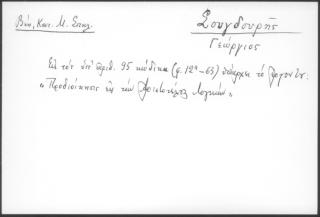 Βιβ. Κων. Μ. Επαγ.
Σουγδουρῆς
Γεώργιος
Εἰς τὸν ὑπ' ἀριθ. 95 κώδικα (φ. 12α-63) ὑπάρχει τὸ ἔργον Σγ.
"Προδιοίκησις εἰς τὴν Ἀριστοτέλους Λογικήν"